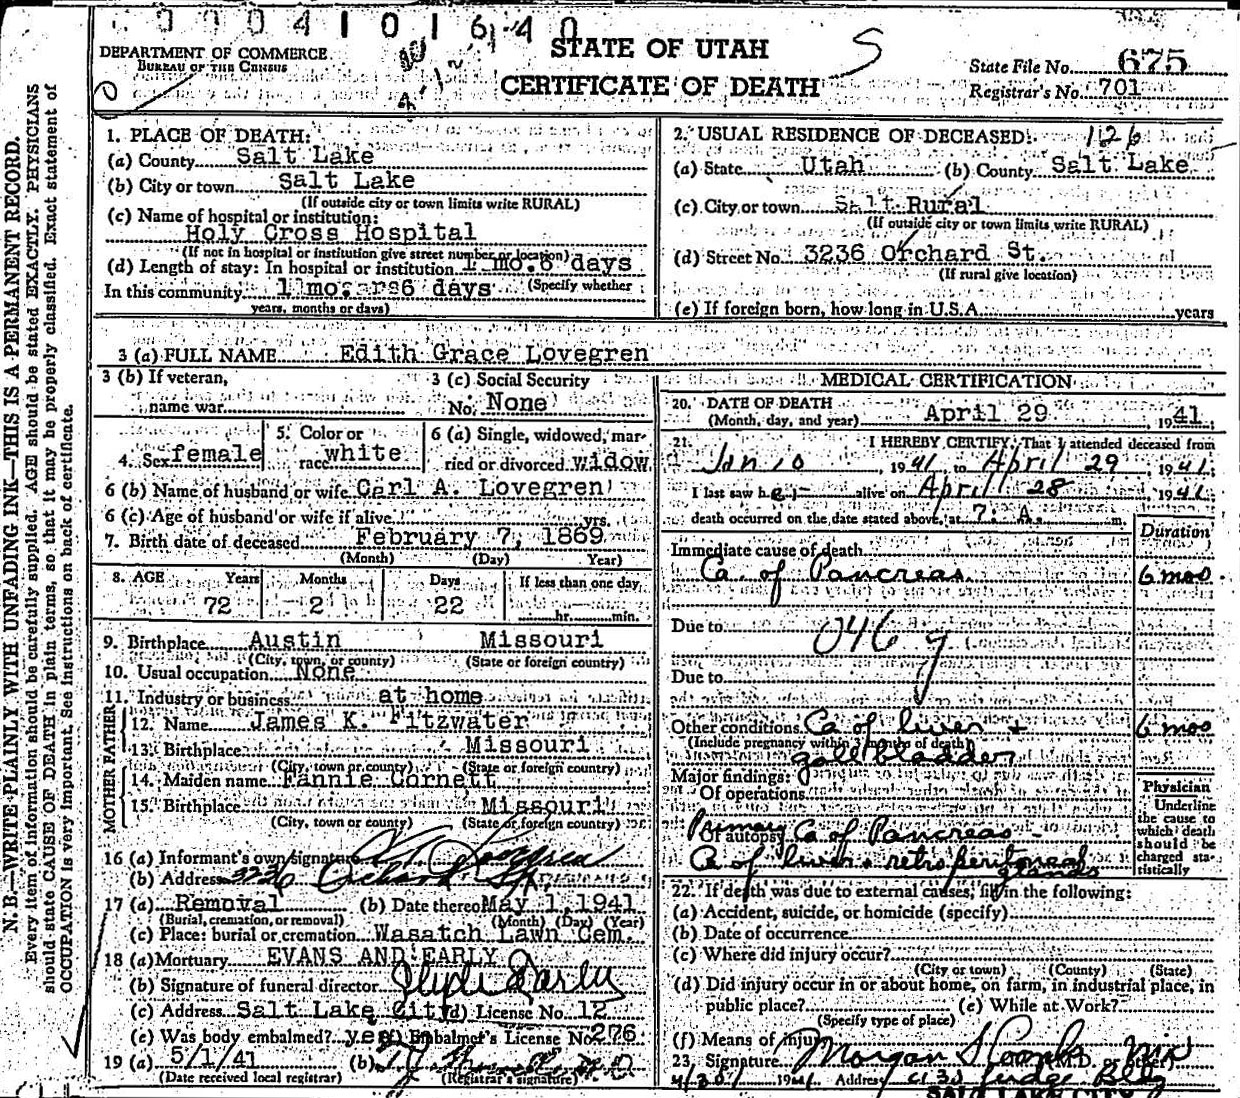 0 0 0 4 1 0 1 6 4 0
DEPARTMENT OF COMMERCE
BUREAU OF THE CENSUS
STATE OF UTAH
CERTIFICATE OF DEATH
S
State File No. 675
Registrar's No. 701
N. B.—WRITE PLAINLY WITH UNFADING INK—THIS IS A PERMANENT RECORD.
Every item of information should be carefully supplied. AGE should be stated EXACTLY. PHYSICIANS
should state CAUSE OF DEATH in plain terms, so that it may be properly classified. Exact statement of
OCCUPATION is very important. See instructions on back of certificate.
1. PLACE OF DEATH:
(a) County Salt Lake
(b) City or town Salt Lake
(If outside city or town limits write RURAL)
(c) Name of hospital or institution:
Holy Cross Hospital
(If not in hospital or institution give street number or location)
(d) Length of stay: In hospital or institution 1 mo. 6 days
In this community 1 mo. 6 days (Specify whether
years, months or days)
2. USUAL RESIDENCE OF DECEASED: 126
(a) State Utah (b) County Salt Lake
(c) City or town Salt Rural
(If outside city or town limits write RURAL)
(d) Street No. 3236 Orchard St.
(If rural give location)
(e) If foreign born, how long in U.S.A. years
3 (a) FULL NAME Edith Grace Lovegren
3 (b) If veteran,
name war
3 (c) Social Security
No. None
4. Sex female
5. Color or
race white
6 (a) Single, widowed, mar-
ried or divorced widow
6 (b) Name of husband or wife Carl A. Lovegren
6 (c) Age of husband or wife if alive yrs.
7. Birth date of deceased February 7, 1869
(Month) (Day) Year)
8. AGE Years Months Days If less than one day
72 2 22 hr. min.
9. Birthplace Austin Missouri
(City, town, or county) (State or foreign country)
10. Usual occupation None
11. Industry or business at home
FATHER
12. Name James K. Fitzwater
13. Birthplace Missouri
(City, town or county) (State or foreign country)
MOTHER
14. Maiden name Fannie Cornett
15. Birthplace Missouri
(City, town or county) (State or foreign country)
16 (a) Informant's own signature
(b) Address 3236 Orchard St.
17 (a) Removal (b) Date thereof May 1, 1941
(Burial, cremation, or removal) (Month) (Day) (Year)
(c) Place: burial or cremation Wasatch Lawn Cem.
18 (a) Mortuary EVANS AND EARLY
(b) Signature of funeral director Clyde Early
(c) Address Salt Lake City (d) License No. 12
(e) Was body embalmed? yes (f) Embalmer's License No. 276
19 (a) 5/1/41 (b)
(Date received local registrar) (Registrar's signature)
MEDICAL CERTIFICATION
20. DATE OF DEATH
(Month, day, and year) April 29 1941
21. I HEREBY CERTIFY, That I attended deceased from
Jan 10, 1941 to April 29, 1941;
I last saw her alive on April 28 1941;
death occurred on the date stated above, at 7. A. m.
Duration
Immediate cause of death
Ca. of Pancreas 6 mos.
Due to 046 g
Due to
Other conditions Ca of liver + 6 mos
(Include pregnancy within 3 months of death)
gall bladder
Major findings:
Of operations
Primary Ca of Pancreas
Of autopsy
Ca of liver + retroperitoneal
glands
Physician
Underline
the cause to
which death
should be
charged sta-
tistically
22. If death was due to external causes, fill in the following:
(a) Accident, suicide, or homicide (specify)
(b) Date of occurrence
(c) Where did injury occur?
(City or town) (County) (State)
(d) Did injury occur in or about home, on farm, in industrial place, in
public place? (e) While at Work?
(Specify type of place)
(f) Means of injury
23. Signature Morgan S Coombs (M.D. or
4/30/ 1941 Address 1130 Judge Bldg
SALT LAKE CITY